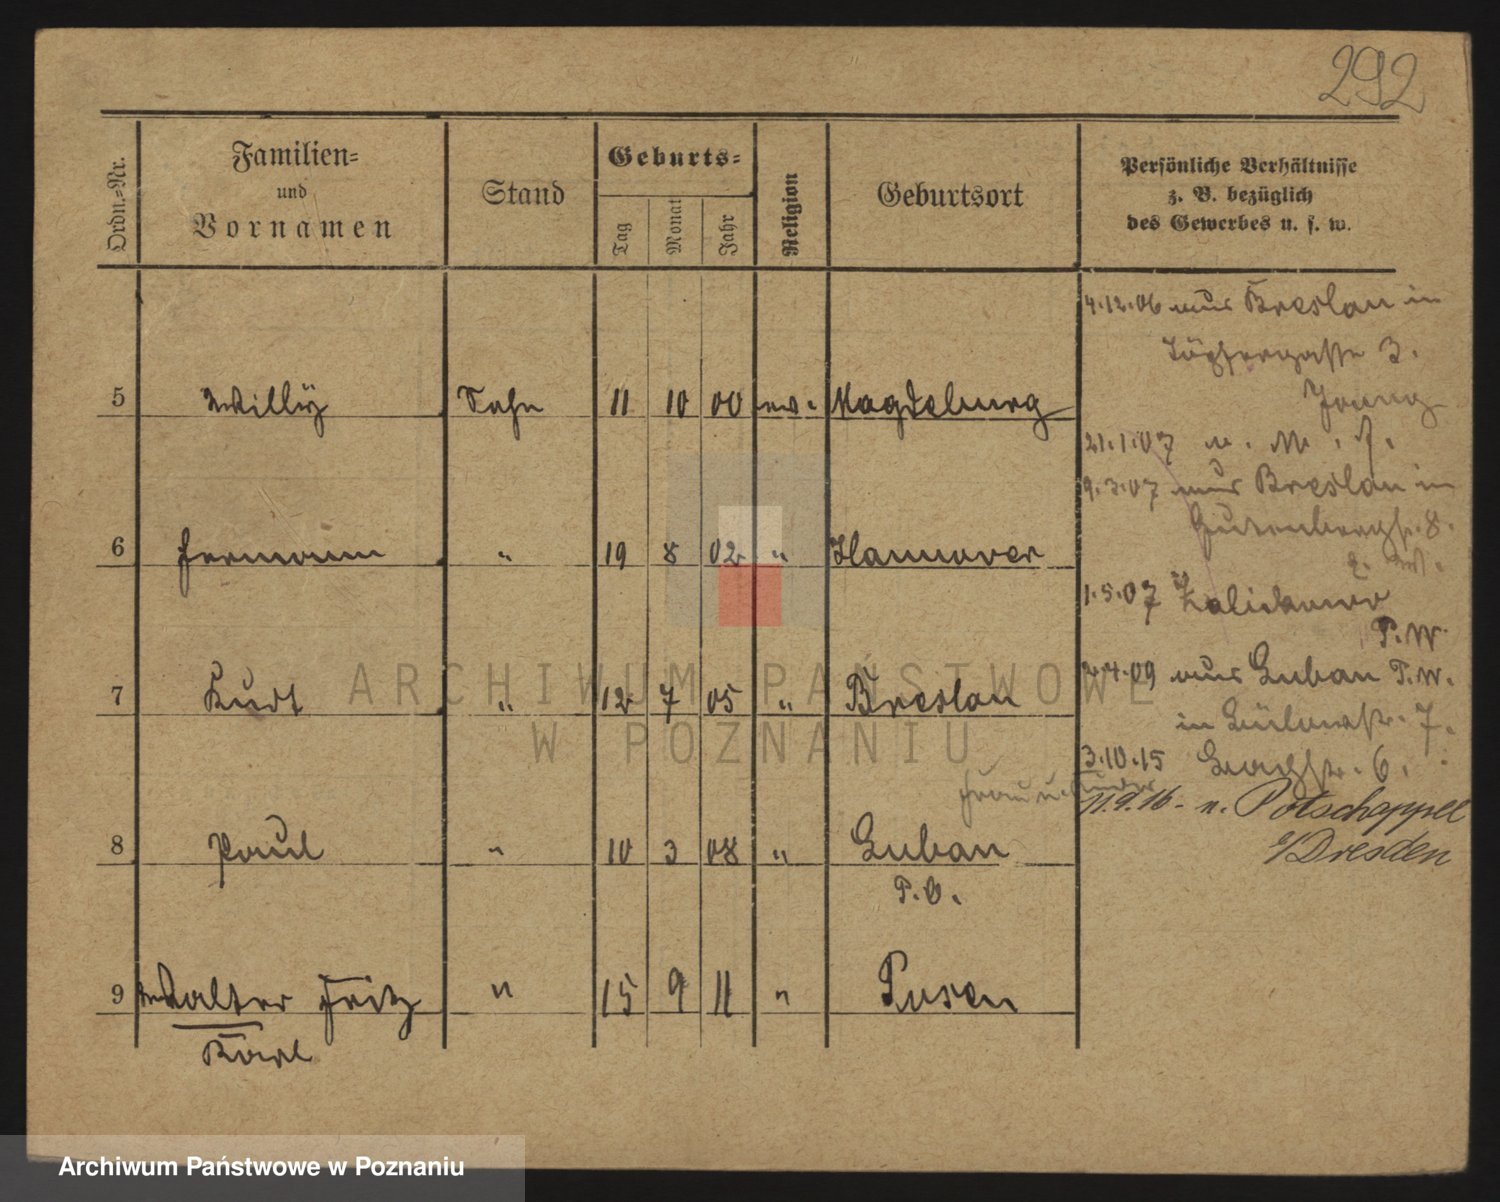 292
Ordn.-Nr.
Familien-
und
Vornamen
Stand
Geburts-
Tag
Monat
Jahr
Religion
Geburtsort
Persönliche Verhältnisse
z. B. bezüglich
des Gewerbes u. s. w.
4.12.06 aus Breslau in
Töpfergasse 3.
5 Willy Sohn 11 10 00 ev. Magdeburg
21.1.07
9.3.07 aus Breslau in
Gutenbergstr. 8.
6 Hermann " 19 8 02 " Hannover
1.5.07
P.W.
7 Kurt " 12 7 05 " Breslau
4.09 aus Luban P.W.
in Bülowstr. 7.
3.10.15 6.
Frau u. Kinder
11.9.16 - n. Potschappel
b/Dresden
8 Paul " 10 3 08 " Luban
P.O.
9 Walter Fritz " 15 9 11 " Posen
Karl
ARCHIWUM PAŃSTWOWE
W POZNANIU
Archiwum Państwowe w Poznaniu